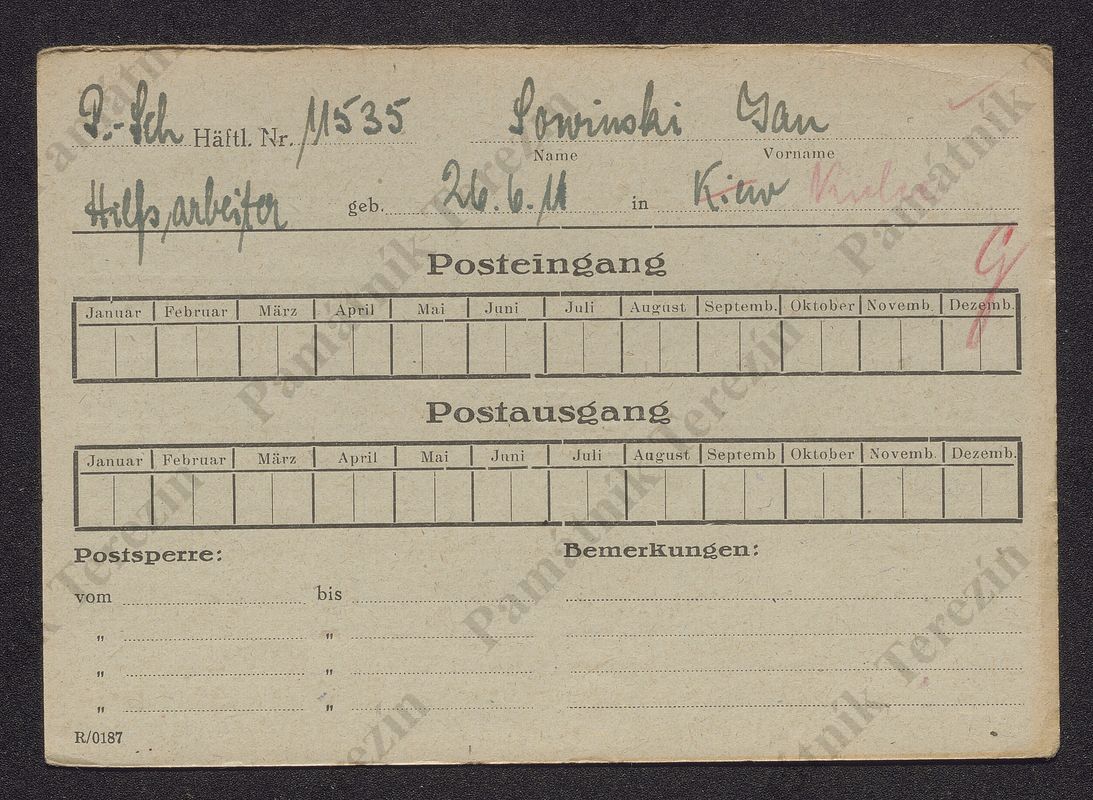 P.-Sch Häftl. Nr. 11535 Sowinski Jan
Name Vorname
Hilfsarbeiter geb. 26.6.11 in Kiew
Posteingang
Januar Februar März April Mai Juni Juli August Septemb. Oktober Novemb. Dezemb.
Postausgang
Januar Februar März April Mai Juni Juli August Septemb Oktober Novemb. Dezemb.
Postsperre: Bemerkungen:
vom bis
" "
" "
" "
R/0187
Památník Terezín